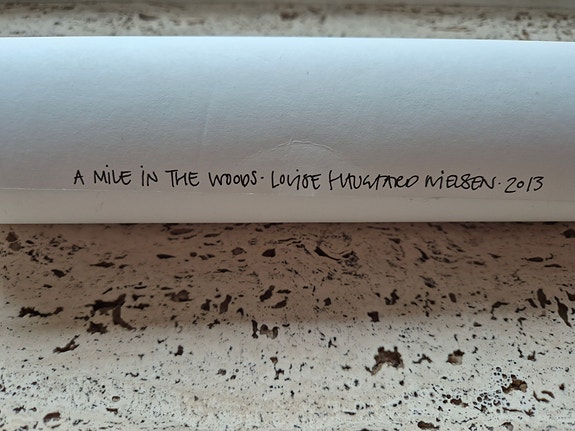 A MILE IN THE WOODS · LOUISE HAUGAARD NIELSEN · 2013